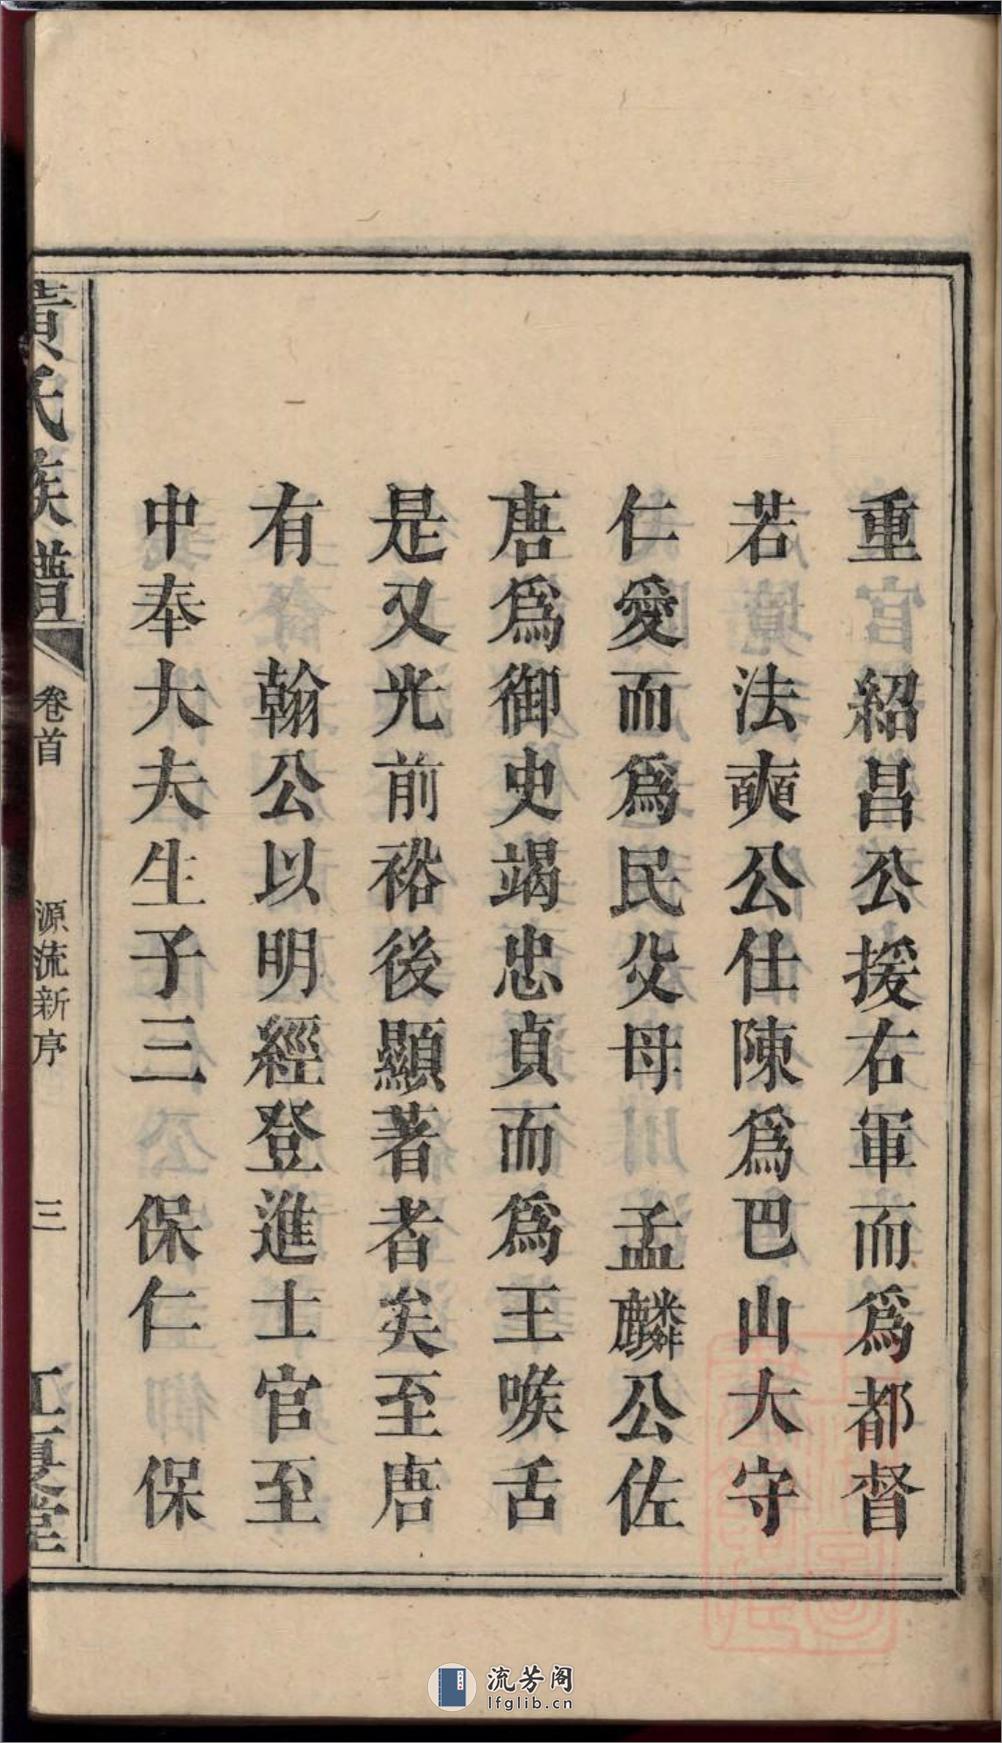 重 紹昌公援右軍而爲都督
若 法奭公仕陳爲巴山大守
仁愛而爲民父母 孟麟公佐
唐爲御史竭忠貞而爲王喉舌
是又光前裕後顯著者矣至唐
有 翰公以明經登進士官至
中奉大夫生子三 保仁 保
黃氏族譜
卷首
源流新序
三
江夏堂
流芳阁
lfglib.cn